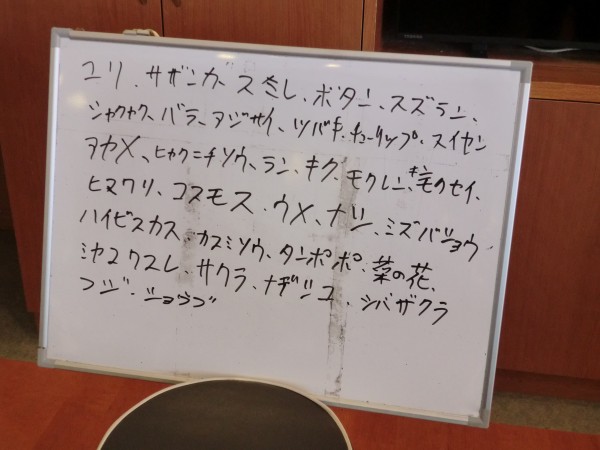 ユリ、サザンガ、スミレ、ボタン、スズラン、
シャクヤク、バラ、アジサイ、ツバキ、チューリップ、スイセン
アヤメ、ヒャクニチソウ、ラン、キク、モクレン、キンモクセイ、
ヒマワリ、コスモス、ウメ、ナシ、ミズバショウ
ハイビスカス、カスミソウ、タンポポ、菜の花、
ミヤコワスレ、サクラ、ナデシコ、シバザクラ
フジ、ショウブ